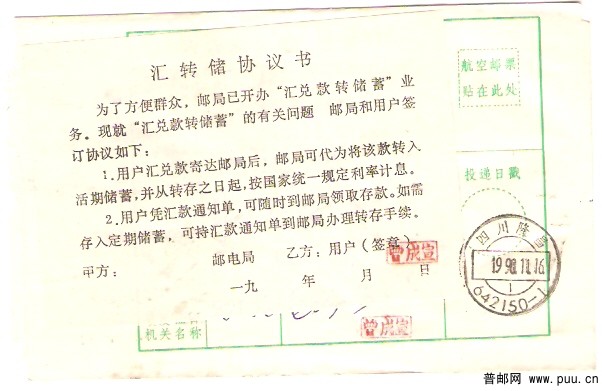 汇转储协议书
为了方便群众，邮局已开办“汇兑款转储蓄”业
务。现就“汇兑款转储蓄”的有关问题 邮局和用户签
订协议如下：
1.用户汇兑款寄达邮局后，邮局可代为将该款转入
活期储蓄，并从转存之日起，按国家统一规定利率计息。
2.用户凭汇款通知单，可随时到邮局领取存款。如需
存入定期储蓄，可持汇款通知单到邮局办理转存手续。
甲方： 邮电局 乙方：用户（签章）
曾成宣
一九 年 月 日
航空邮票
贴在此处
投递日戳
四川隆昌
642150-1
机关名称
曾成宣
普邮网 www.puu.cn